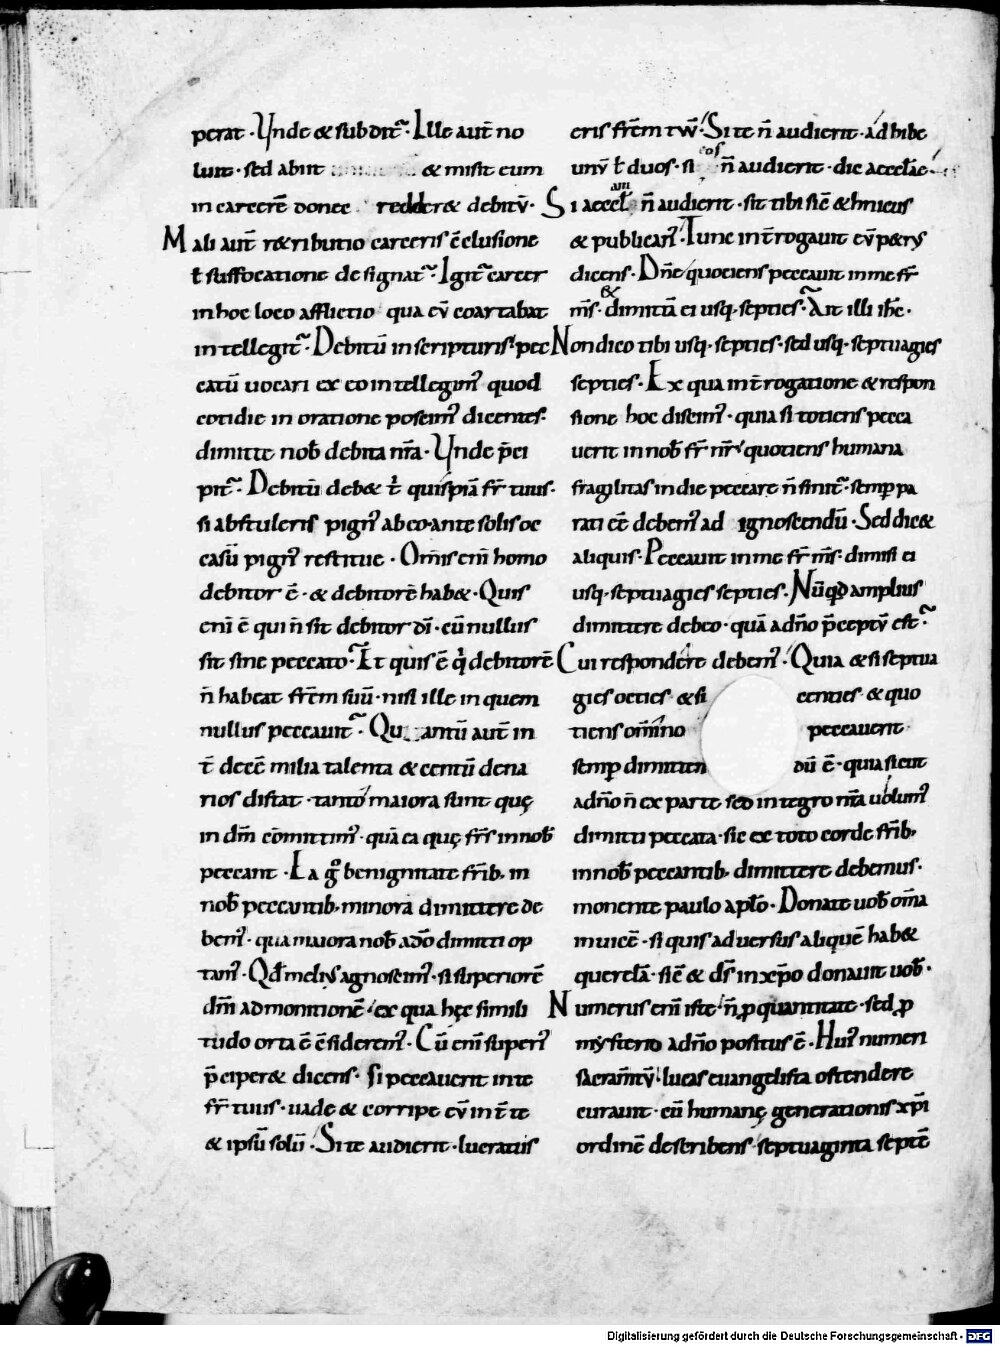 perat · Unde & subdit᷒ · Ille aut̄ no
luit · sed abiit & misit eum
in carcerē donec redder& debitū ·
Mali aut̄ r&ributio carceris ē clusione
ł suffocatione designat᷒ · Igit᷒ carcer
in hoc loco afflictio qua cū coartabat
intellegit᷒ · Debitū in scripturis pec
catū uocari ex eo intellegim᷒ quod
cotidie in oratione poscim᷒ dicentes ·
dimitte nob̄ debita nr̄a · Unde p̄ci
pit᷒ · Debitū deb& t̄ quispiā fr̄ tuus ·
si abstuleris pign᷒ ab eo · ante solis oc
casū pign᷒ restitue · Om̄is eni̅ homo
debitor ē · & debitorē hab& · Quis
eni̅ ē qui n̄ sit debitor dī · cū nullus
sit sine peccato · Et quis ē q̄ debitorē
n̄ habeat fr̄em suū · nisi ille in quem
nullus peccauit · Quantū aut̄ in
t̄ decē milia talenta & centū dena
rios distat · tanto maiora sunt quę
in dm̄ cōmittim᷒ · quā ea quę fr̄s in nob̄
peccant · Ea g̊ benignitate fr̄ib; in
nob̄ peccantib; minora dimittere de
bem᷒ · qua maiora nob̄ a dō dimitti op
tam᷒ · Qd̄ meli᷒ agnoscim᷒ · si superiorē
dn̄i admonitionē · ex qua hęc simili
tudo orta ē ēsiderem᷒ · Cū eni̅ superi᷒
p̄ciper& dicens · si peccauerit in te
fr̄ tuus · uade & corripe eū int̄ te
& ipsū solū · Si te audierit · lucratus
eris fr̄em tuū · Si te n̄ audierit · adhibe
unū ł duos · si eos n̄ audierit · dic aeccłae ·
Si aeccł am n̄ audierit · sit tibi sic̄ &hnicus
& publican᷒ · Tunc int̄rogauit eū p&rus
dicens · Dn̄e quociens peccauit in me fr̄
m̄s · & dimittā ei usq; septies · Ait illi ih̄c ·
Non dico tibi usq; septies · sed usq; septuagies
septies · Ex qua int̄rogatione & respon
sione hoc discim᷒ · quia si totiens pecca
uerit in nob̄ fr̄ nr̄ · quotiens humana
fragilitas in die peccare n̄ sinit᷒ · semp̄ pa
rati eē debem᷒ ad ignoscendū · Sed dic&
aliquis · Peccauit in me fr̄ m̄s · dimisi ei
usq; septuagies septies · Nūqd̄ amplius
dimittere debeo · quā a dn̄o p̄ceptū est ·
Cui respondere debem᷒ · Quia & si septua
gies octies · & si centies · & quo
tiens om̄ino peccauerit
semp̄ dimitten dū ē · quia sicut
a dn̄o n̄ ex parte sed integro nr̄a uolum᷒
dimitti peccata · sic ex toto corde fr̄ib;
in nob̄ peccantib; dimittere debemus ·
monente paulo apłō · Donate uob̄ om̄a
inuicē · si quis aduersus aliquē hab&
querelā · sic̄ & ds̄ in xp̄o donauit uob̄ ·
Numerus eni̅ iste · n̄ p̱ quantitate · sed p̱
mysterio a dn̄o positus ē · Hui᷒ numeri
sacram̄tū · lucas euangelista ostendere
curauit · cū humanę generationis xp̄i
ordinē describens · septuaginta septē
Digitalisierung gefördert durch die Deutsche Forschungsgemeinschaft - DFG